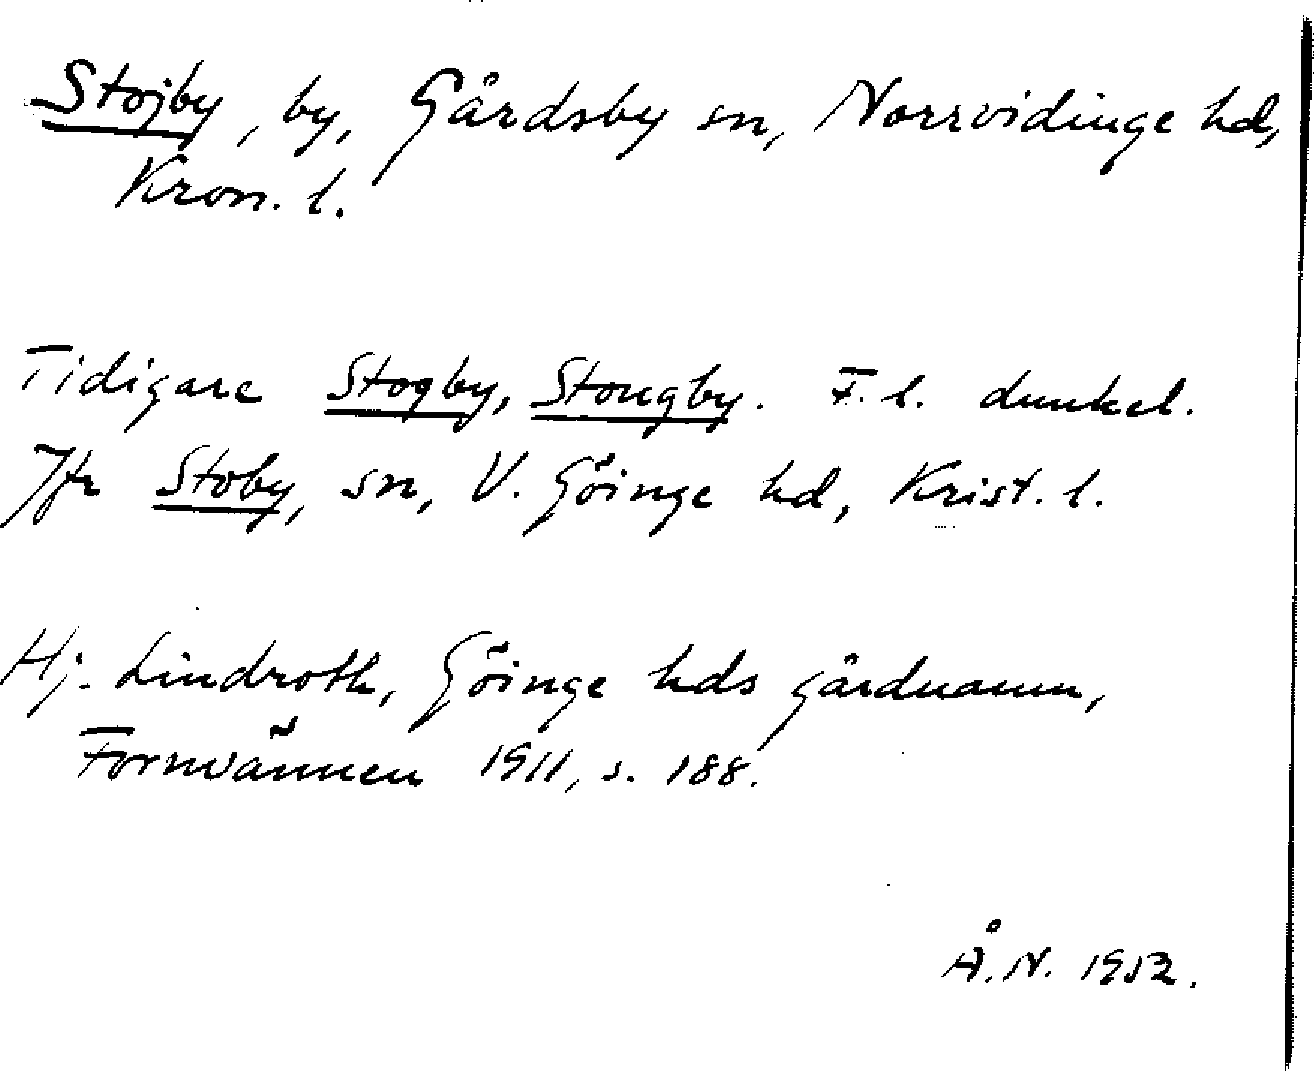 Stojby, by, Gårdsby sn, Norrvidinge hd,
Kron. l.
Tidigare Stogby, Stougby. F. l. dunkel.
Jfr Stoby, sn, V. Göinge hd, Krist. l.
Hj. Lindroth, Göinge hds gårdnamn,
Fornvännen 1911, s. 188.
Å. N. 1952.